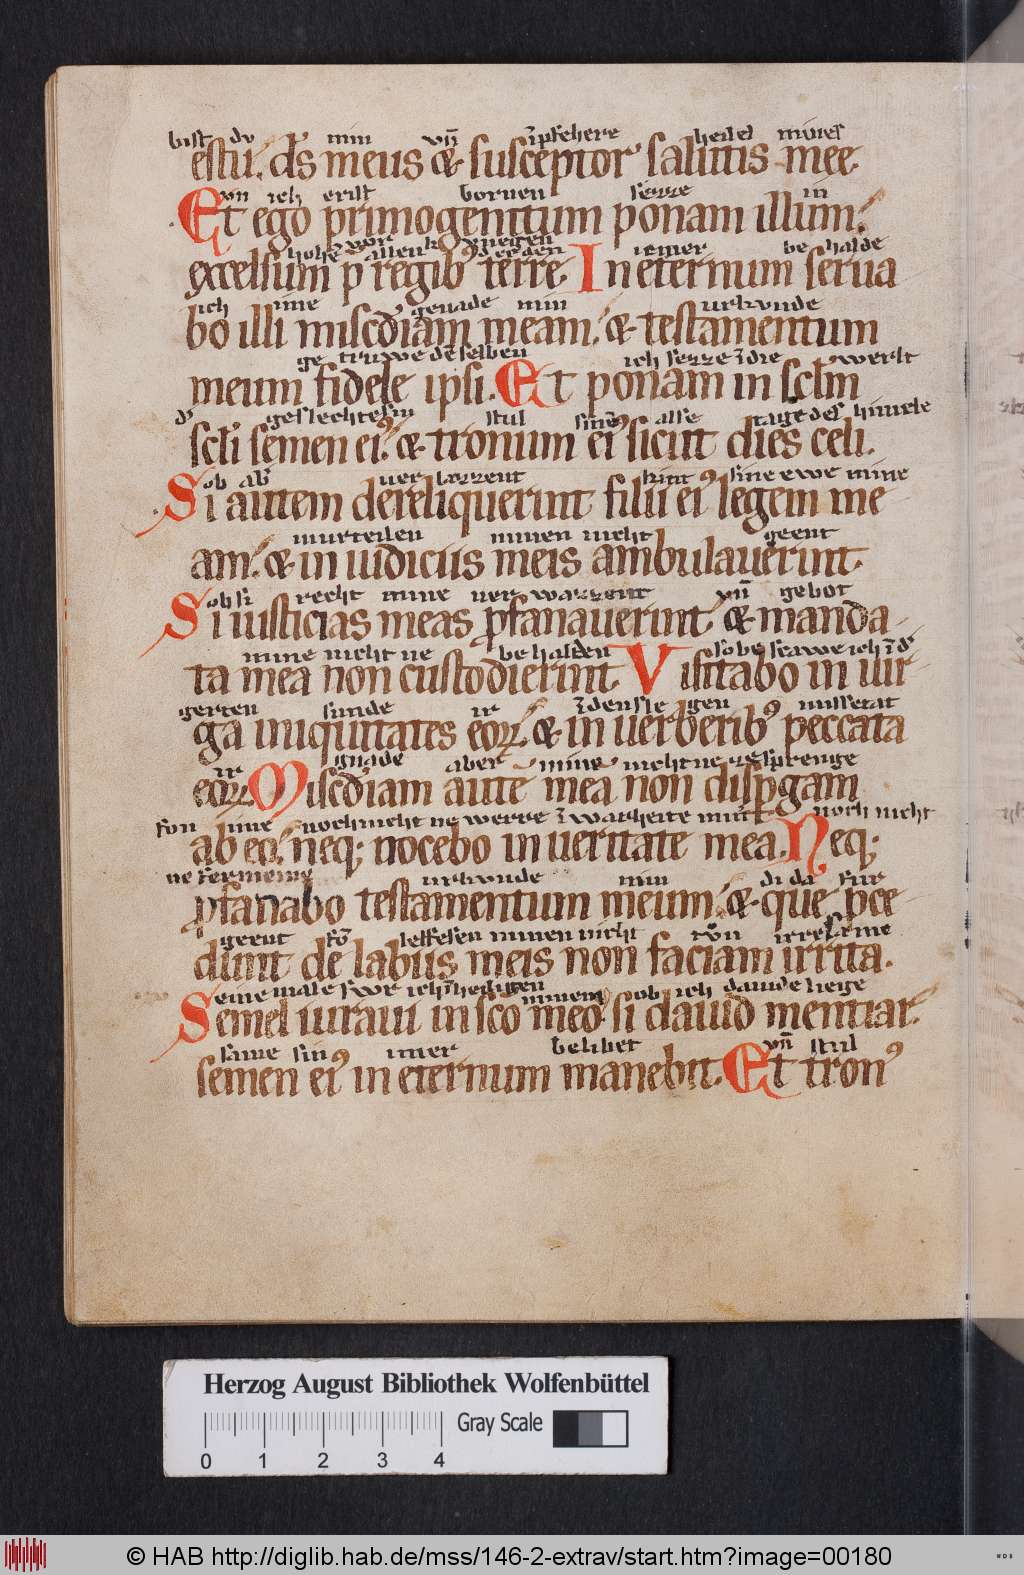 bist du min vn̄ īpfehere heilel mines
es tu. ds̄ meus & susceptor salutis mee.
vn̄ ich erist bornen sezze in
Et ego primogenitum ponam illum.
hohē vor allen kvneigen d' erden iemer be halde
excelsum p̄ regib' terre. In eternum serua
ich ime genade min urkvnde
bo illi mis̄cdiam meam. & testamentum
ge truwe deselben ich sezze ī die werlt
meum fidele ipsi. Et ponam in sc̄lm
d' geslechte sin stul sinē alse tage des himele
sc̄li semen ei'. & tronum ei' sicut dies celi.
ob ab' uer lazzent kint sine ewe mine
Si autem dereliquerint filii ei' legem me
inurteilen minen nicht geent
am. & in iudiciis meis ambulauerint.
ob si recht mine uer wazzent vn̄ gebot
Si iusticias meas p̄fanauerint & manda
mine nicht ne behalden so be scawe ich ī d'
ta mea non custodierint. Visitabo in uir
gerten sunde ir ī den sle gen missetat
ga iniquitates eoꝝ. & in uerberib' peccata
ir gnade aber mine nicht ne zesprenge
eoꝝ. Mis̄cdiam autē mea non disp̄gam
fon ime noch nicht ne werre ī warheite miner noch nicht
ab eo. neq; nocebo in ueritate mea. Neq;
ne fermeine urkvnde min di da fur
p̄fanabo testamentum meum. & que p̄ce
geent fō leffesen minen nicht tvn irresame
dunt de labiis meis non faciam irrita.
eine male swe ich ī heiligen minem ob ich dauide liege
Semel iuraui in sc̄o meo si dauid mentiar.
same sin imer belibet vn̄ stul
semen ei' in eternum manebit. Et tron'
Herzog August Bibliothek Wolfenbüttel
Gray Scale
0 1 2 3 4
© HAB http://diglib.hab.de/mss/146-2-extrav/start.htm?image=00180